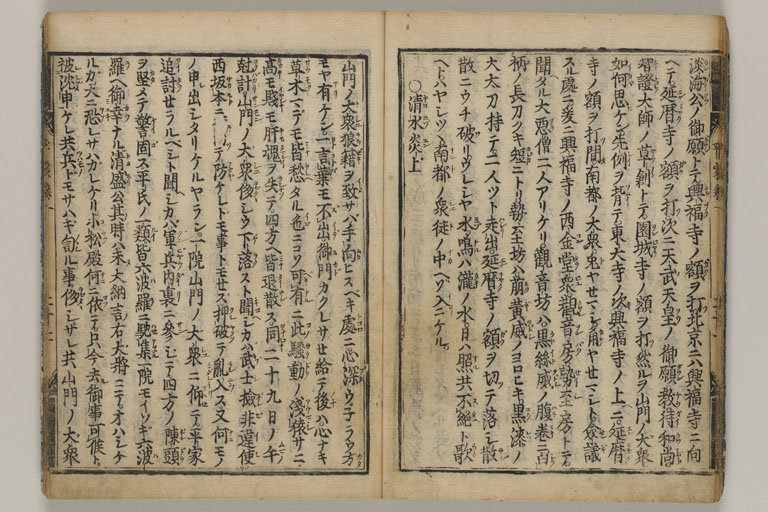 淡海公ノ御願トテ興福寺ノ額ヲ打北京ニハ興福寺ニ向
ヘテ延暦寺ノ額ヲ打次ニ天武天皇ノ御願教待和尚
智證大師ノ草創トテ園城寺ノ額ヲ打然ルヲ山門ノ大衆
如何思ケン先例ヲ背テ東大寺ノ次興福寺ノ上ニ延暦
寺ノ額ヲ打間南都ノ大衆兎ヤセマシ角ヤセマシト僉議
スル處ニ爰ニ興福寺ノ西金堂衆觀音房勢至房トテ
聞タル大惡僧二人アリケリ觀音坊ハ黒絲威ノ腹巻ニ白
柄ノ長刀クキ短ニトリ勢至坊ハ萠黄威ノヨロヒキ黒漆ノ
大太刀持テ二人ツト走出延暦寺ノ額ヲ切テ落シ散
散ニウチ破リウレシヤ水鳴ハ瀧ノ水日ハ照共不絶ト歌
ヘトハヤシツヽ南都ノ衆徒ノ中ヘソ入ニケル
○清水炎上
山門ノ大衆狼藉ヲ致サハ手向ヒスヘキ處ニ心深ウ子ラウ方
モヤ有ケン一言葉モ不出御門カクレサセ給テ後ハ心ナキ
草木マデモ皆愁タル色ニコソ可有ニ此騒動ノ淺猿サニ
高モ賤モ肝魂ヲ失テ四方ヘ皆退散ス同二十九日ノ午
尅計山門ノ大衆俊シウ下落スト聞シカバ武士撿非違使
西坂本ニ テ防ケレドモ事トモセズ押破テ亂入ス又何モノ
ノ申出シタリケルヤラン一院山門ノ大衆ニ仰テ平家
追討セラルヘシト聞シカバ軍兵内裏ニ參シテ四方ノ陳頭
ヲ堅メテ警固ス平氏ノ一類皆六波羅ニ馳集一院モイソギ六波
羅ヘ御幸ナル清盛公其時ハ未大納言右大將ニテオハシケ
ルカ大ニ恐レサハガレケリ小松殿何ニ依テカ只今去御事可候ト
被沈申ケレ共兵ドモサハギ訇ル事俊シサレ共山門ノ大衆